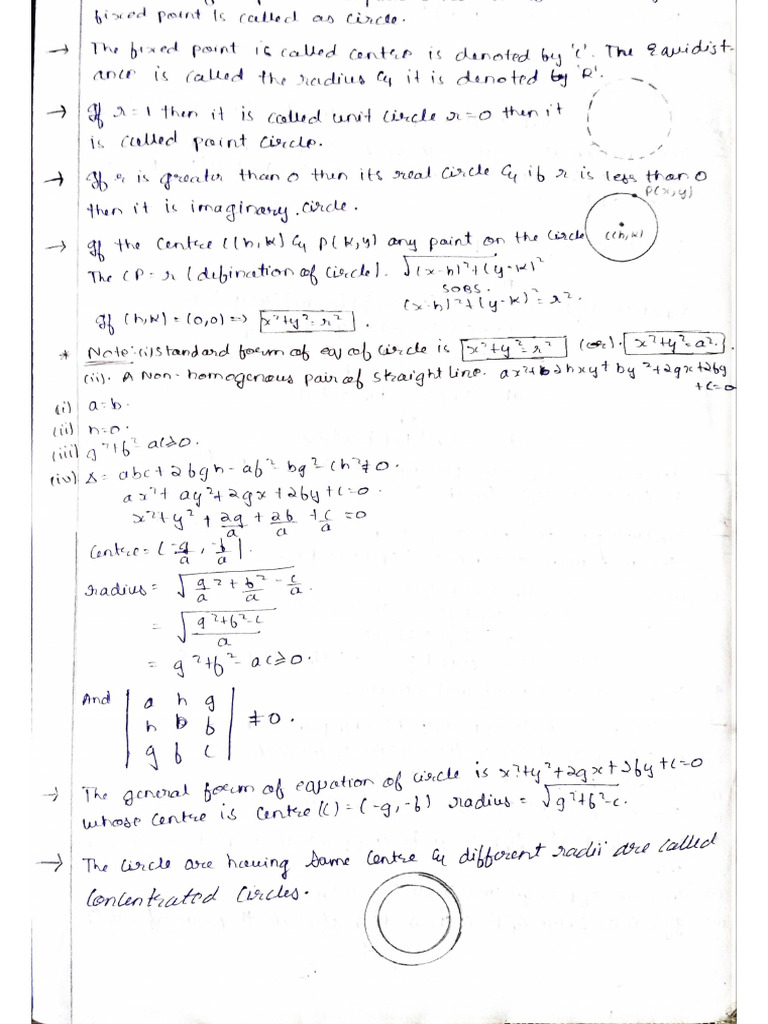 fixed point is called as circle.
→ The fixed point is called center is denoted by 'c'. The Equidist-
ance is called the radius & it is denoted by 'R'.
→ If r=1 then it is called unit circle r=0 then it
is called point circle.
→ If r is greater than 0 then its real circle & if r is less than 0
then it is imaginary circle.
P(x,y)
→ If the centre C(h,k) & P(x,y) any point on the circle
C(h,k)
The CP=r (defination of circle). √(x-h)²+(y-k)²
SOBS.
(x-h)²+(y-k)²=r².
If (h,k)=(0,0)=> x²+y²=r².
* Note:(i) Standard form of eq of circle is x²+y²=r² (or). x²+y²=a².
(ii). A Non-homogenous pair of straight line. ax²+2hxy+by²+2gx+2fy
+c=0
(i) a=b.
(ii) h=0.
(iii) g²+f²-ac≥0.
(iv) Δ=abc+2fgh-af²-bg²-ch²≠0.
ax²+ay²+2gx+2fy+c=0.
x²+y²+2g/a+2f/a+c/a=0
Centre=(-g/a, -f/a).
radius=√g²/a+f²/a-c/a.
=√g²+f²-c/a
=g²+f²-ac≥0.
And |a h g|
|h b f| ≠0.
|g f c|
→ The general form of equation of circle is x²+y²+2gx+2fy+c=0
whose centre is centre(c)=(-g,-f) radius=√g²+f²-c.
→ The circle are having same centre & different radii are called
Concentrated circles.